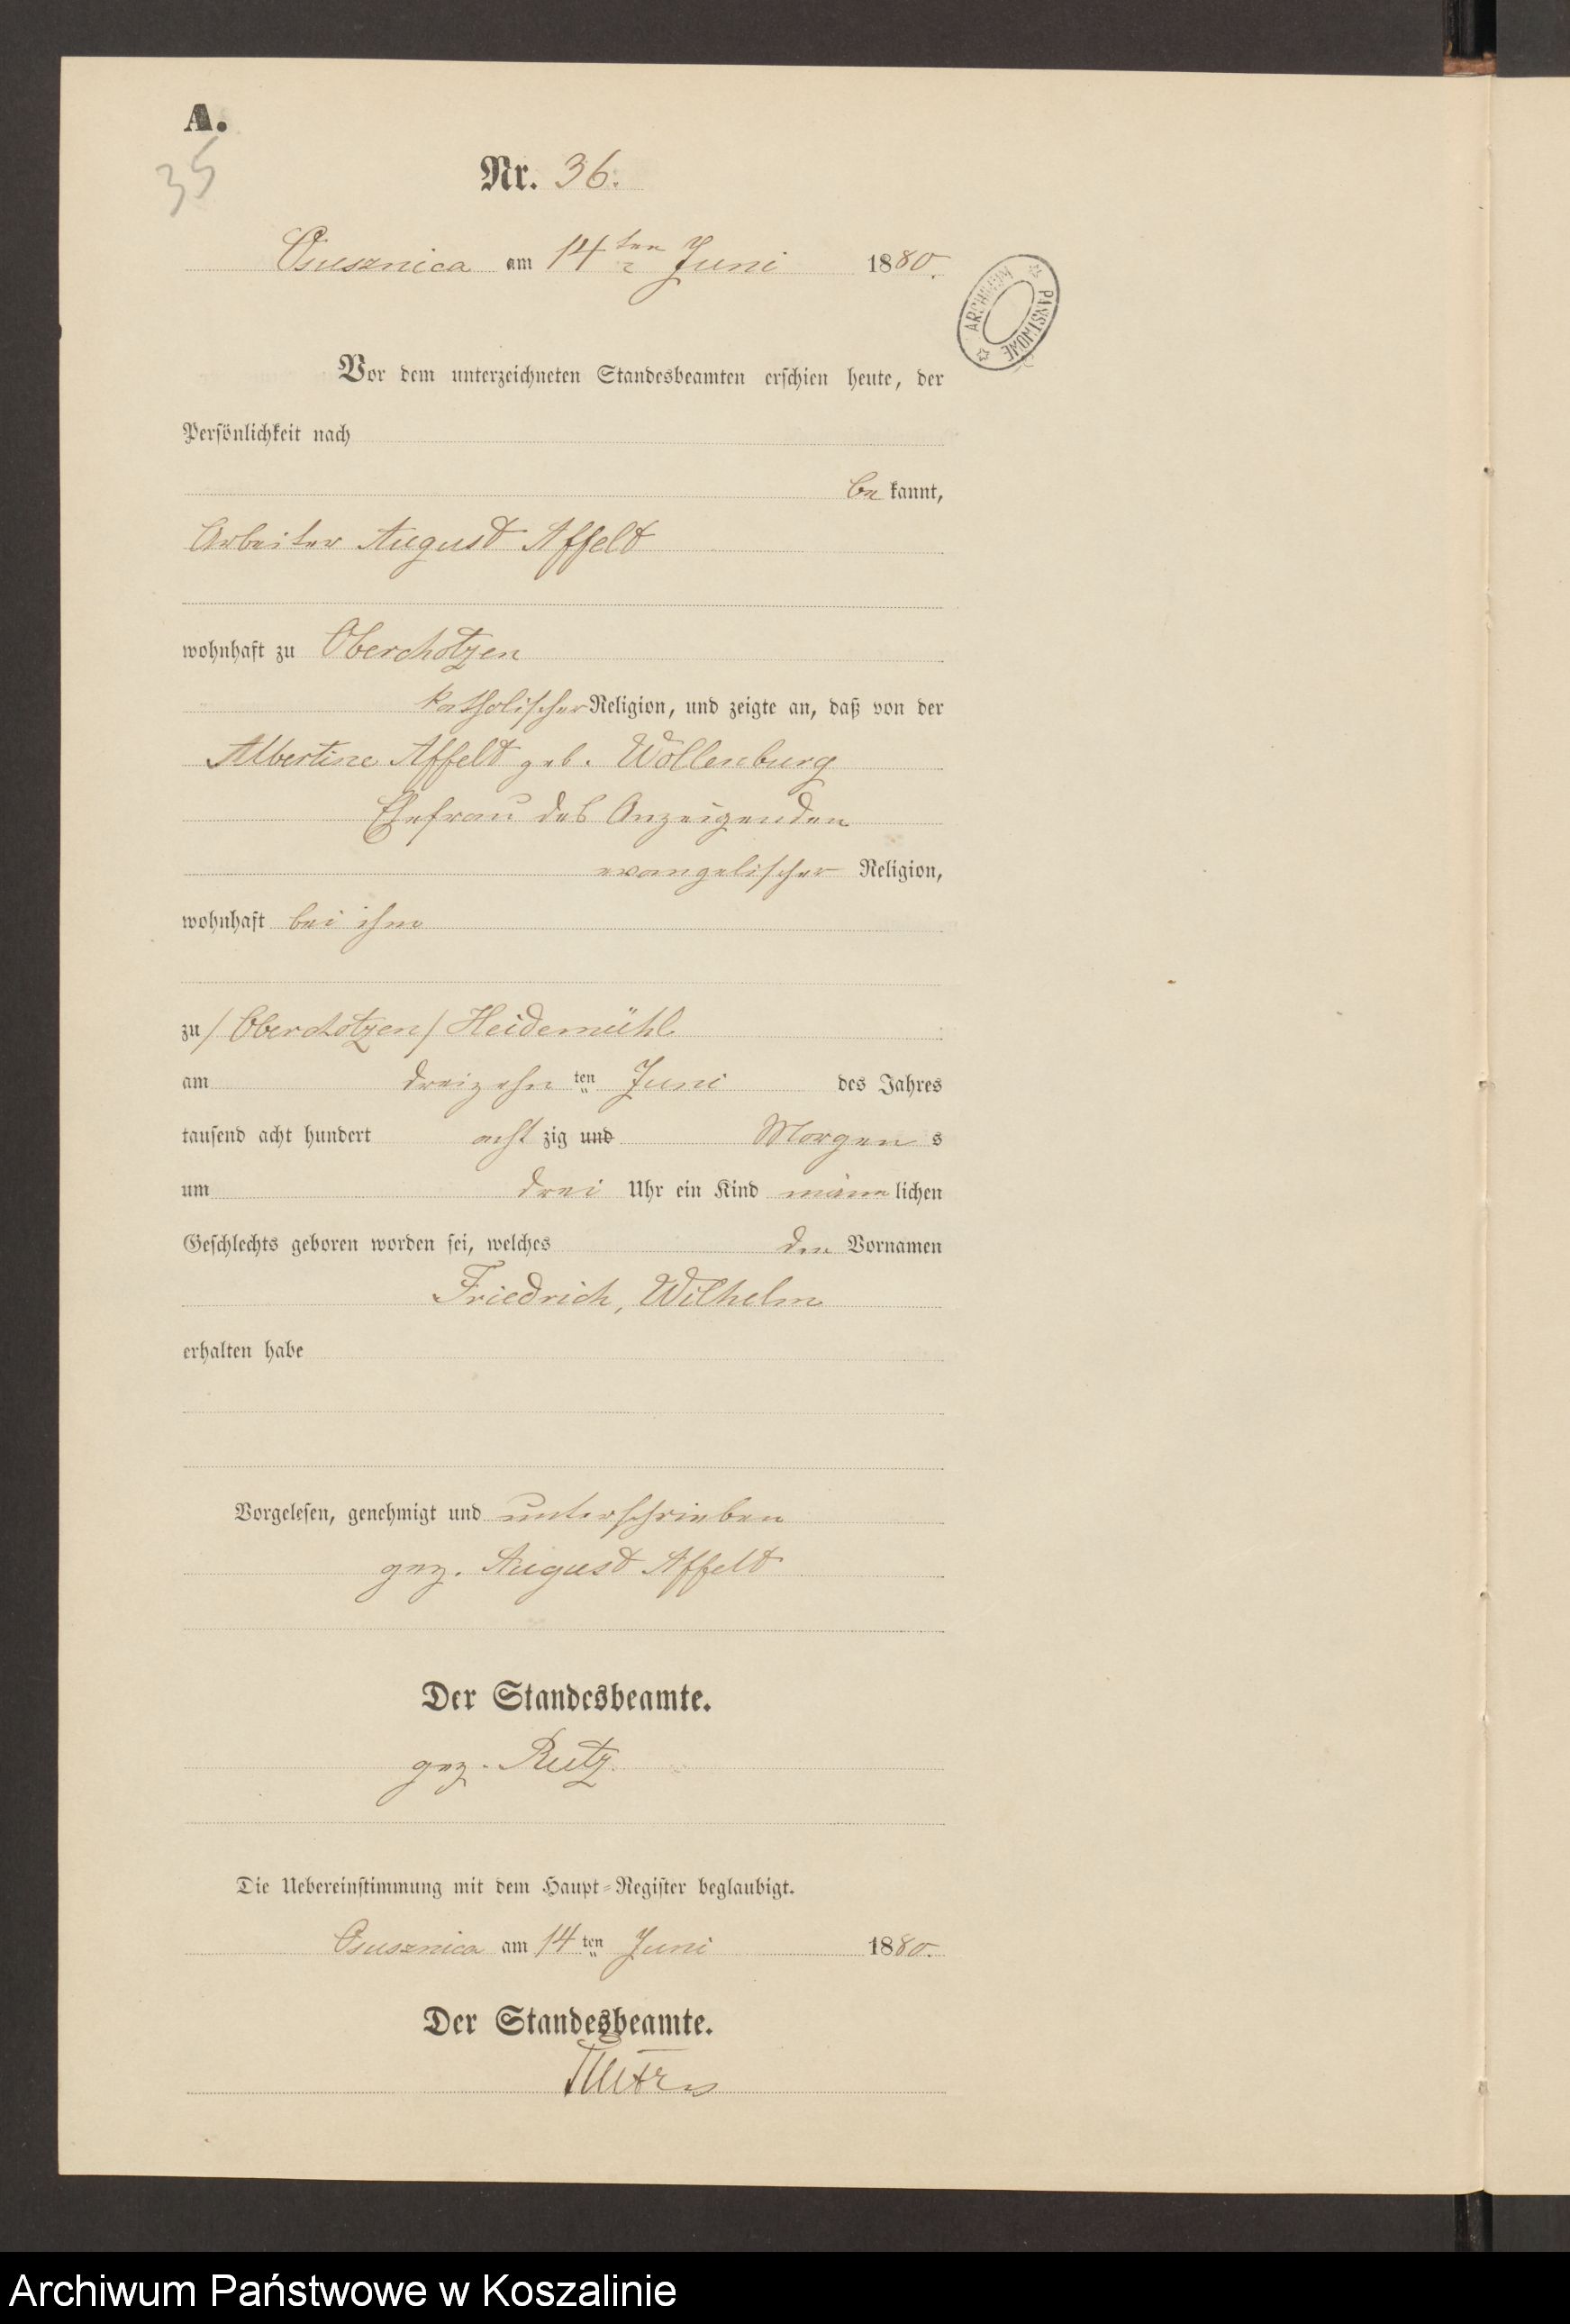 A.
35
Nr. 36.
Osusznica am 14ten Juni 1880.
ARCHIWUM PAŃSTWOWE
Vor dem unterzeichneten Standesbeamten erschien heute, der
Persönlichkeit nach
be kannt,
Arbeiter August Affeld
wohnhaft zu Oberchotzen
katholischer Religion, und zeigte an, daß von der
Albertine Affeld geb. Wollenburg
Ehefrau des Anzeigenden
evangelischer Religion,
wohnhaft bei ihm
zu / Oberchotzen / Heidemühl
am dreizehn ten Juni des Jahres
tausend acht hundert acht zig und Morgen s
um drei Uhr ein Kind männ lichen
Geschlechts geboren worden sei, welches den Vornamen
Friedrich, Wilhelm
erhalten habe
Vorgelesen, genehmigt und unterschrieben
gez. August Affeld
Der Standesbeamte.
gez. Rutz.
Die Uebereinstimmung mit dem Haupt-Register beglaubigt.
Osusznica am 14 ten Juni 1880.
Der Standesbeamte.
Archiwum Państwowe w Koszalinie